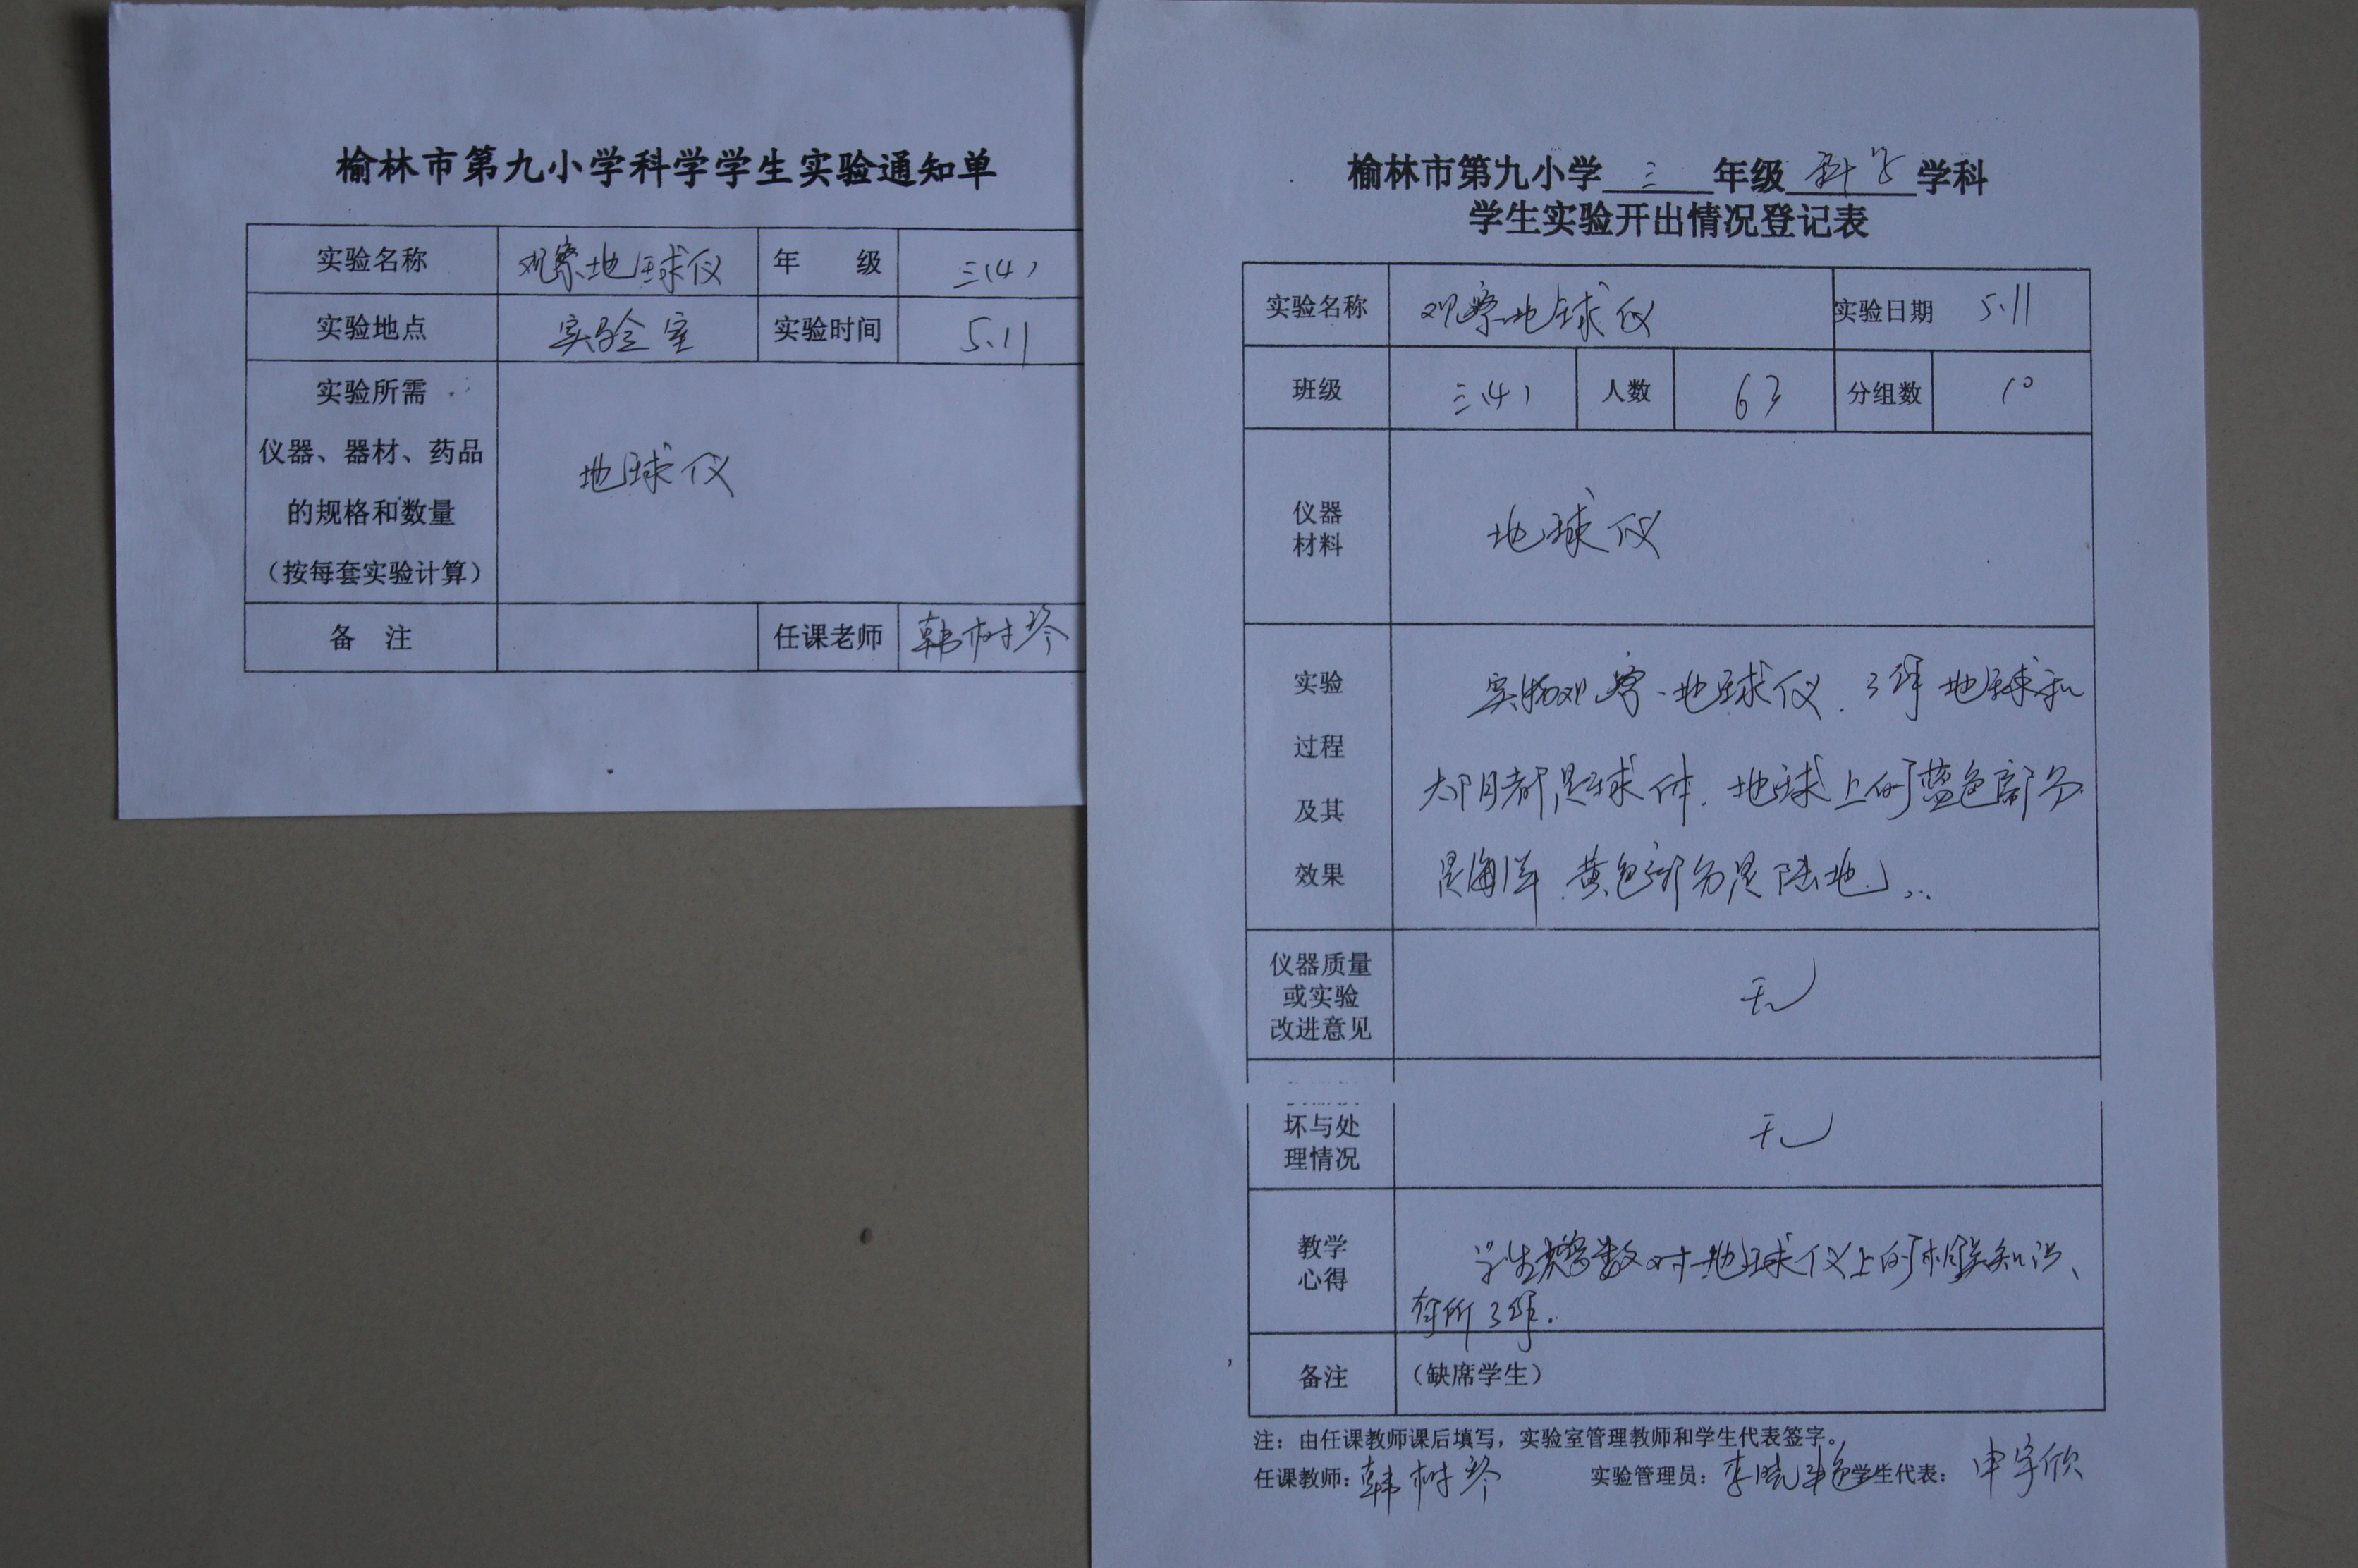 榆林市第九小学科学学生实验通知单
实验名称 观察地球仪 年 级 三(4)
实验地点 实验室 实验时间 5.11
实验所需
仪器、器材、药品
的规格和数量
（按每套实验计算）
地球仪
备 注 任课老师 韩树琴
榆林市第九小学 三 年级 科学 学科
学生实验开出情况登记表
实验名称 观察地球仪 实验日期 5.11
班级 三(4) 人数 63 分组数 10
仪器
材料
地球仪
实验
过程
及其
效果
实物观察地球仪.了解地球和
太阳都是球体.地球上的蓝色部分
是海洋.黄色部分是陆地...
仪器质量
或实验
改进意见
无
坏与处
理情况
无
教学
心得
学生 数对地球仪上的相关知识、
有所了解.
备注 （缺席学生）
注：由任课教师课后填写，实验室管理教师和学生代表签字。
任课教师：韩树琴 实验管理员：李晓艳 学生代表：申宇欣